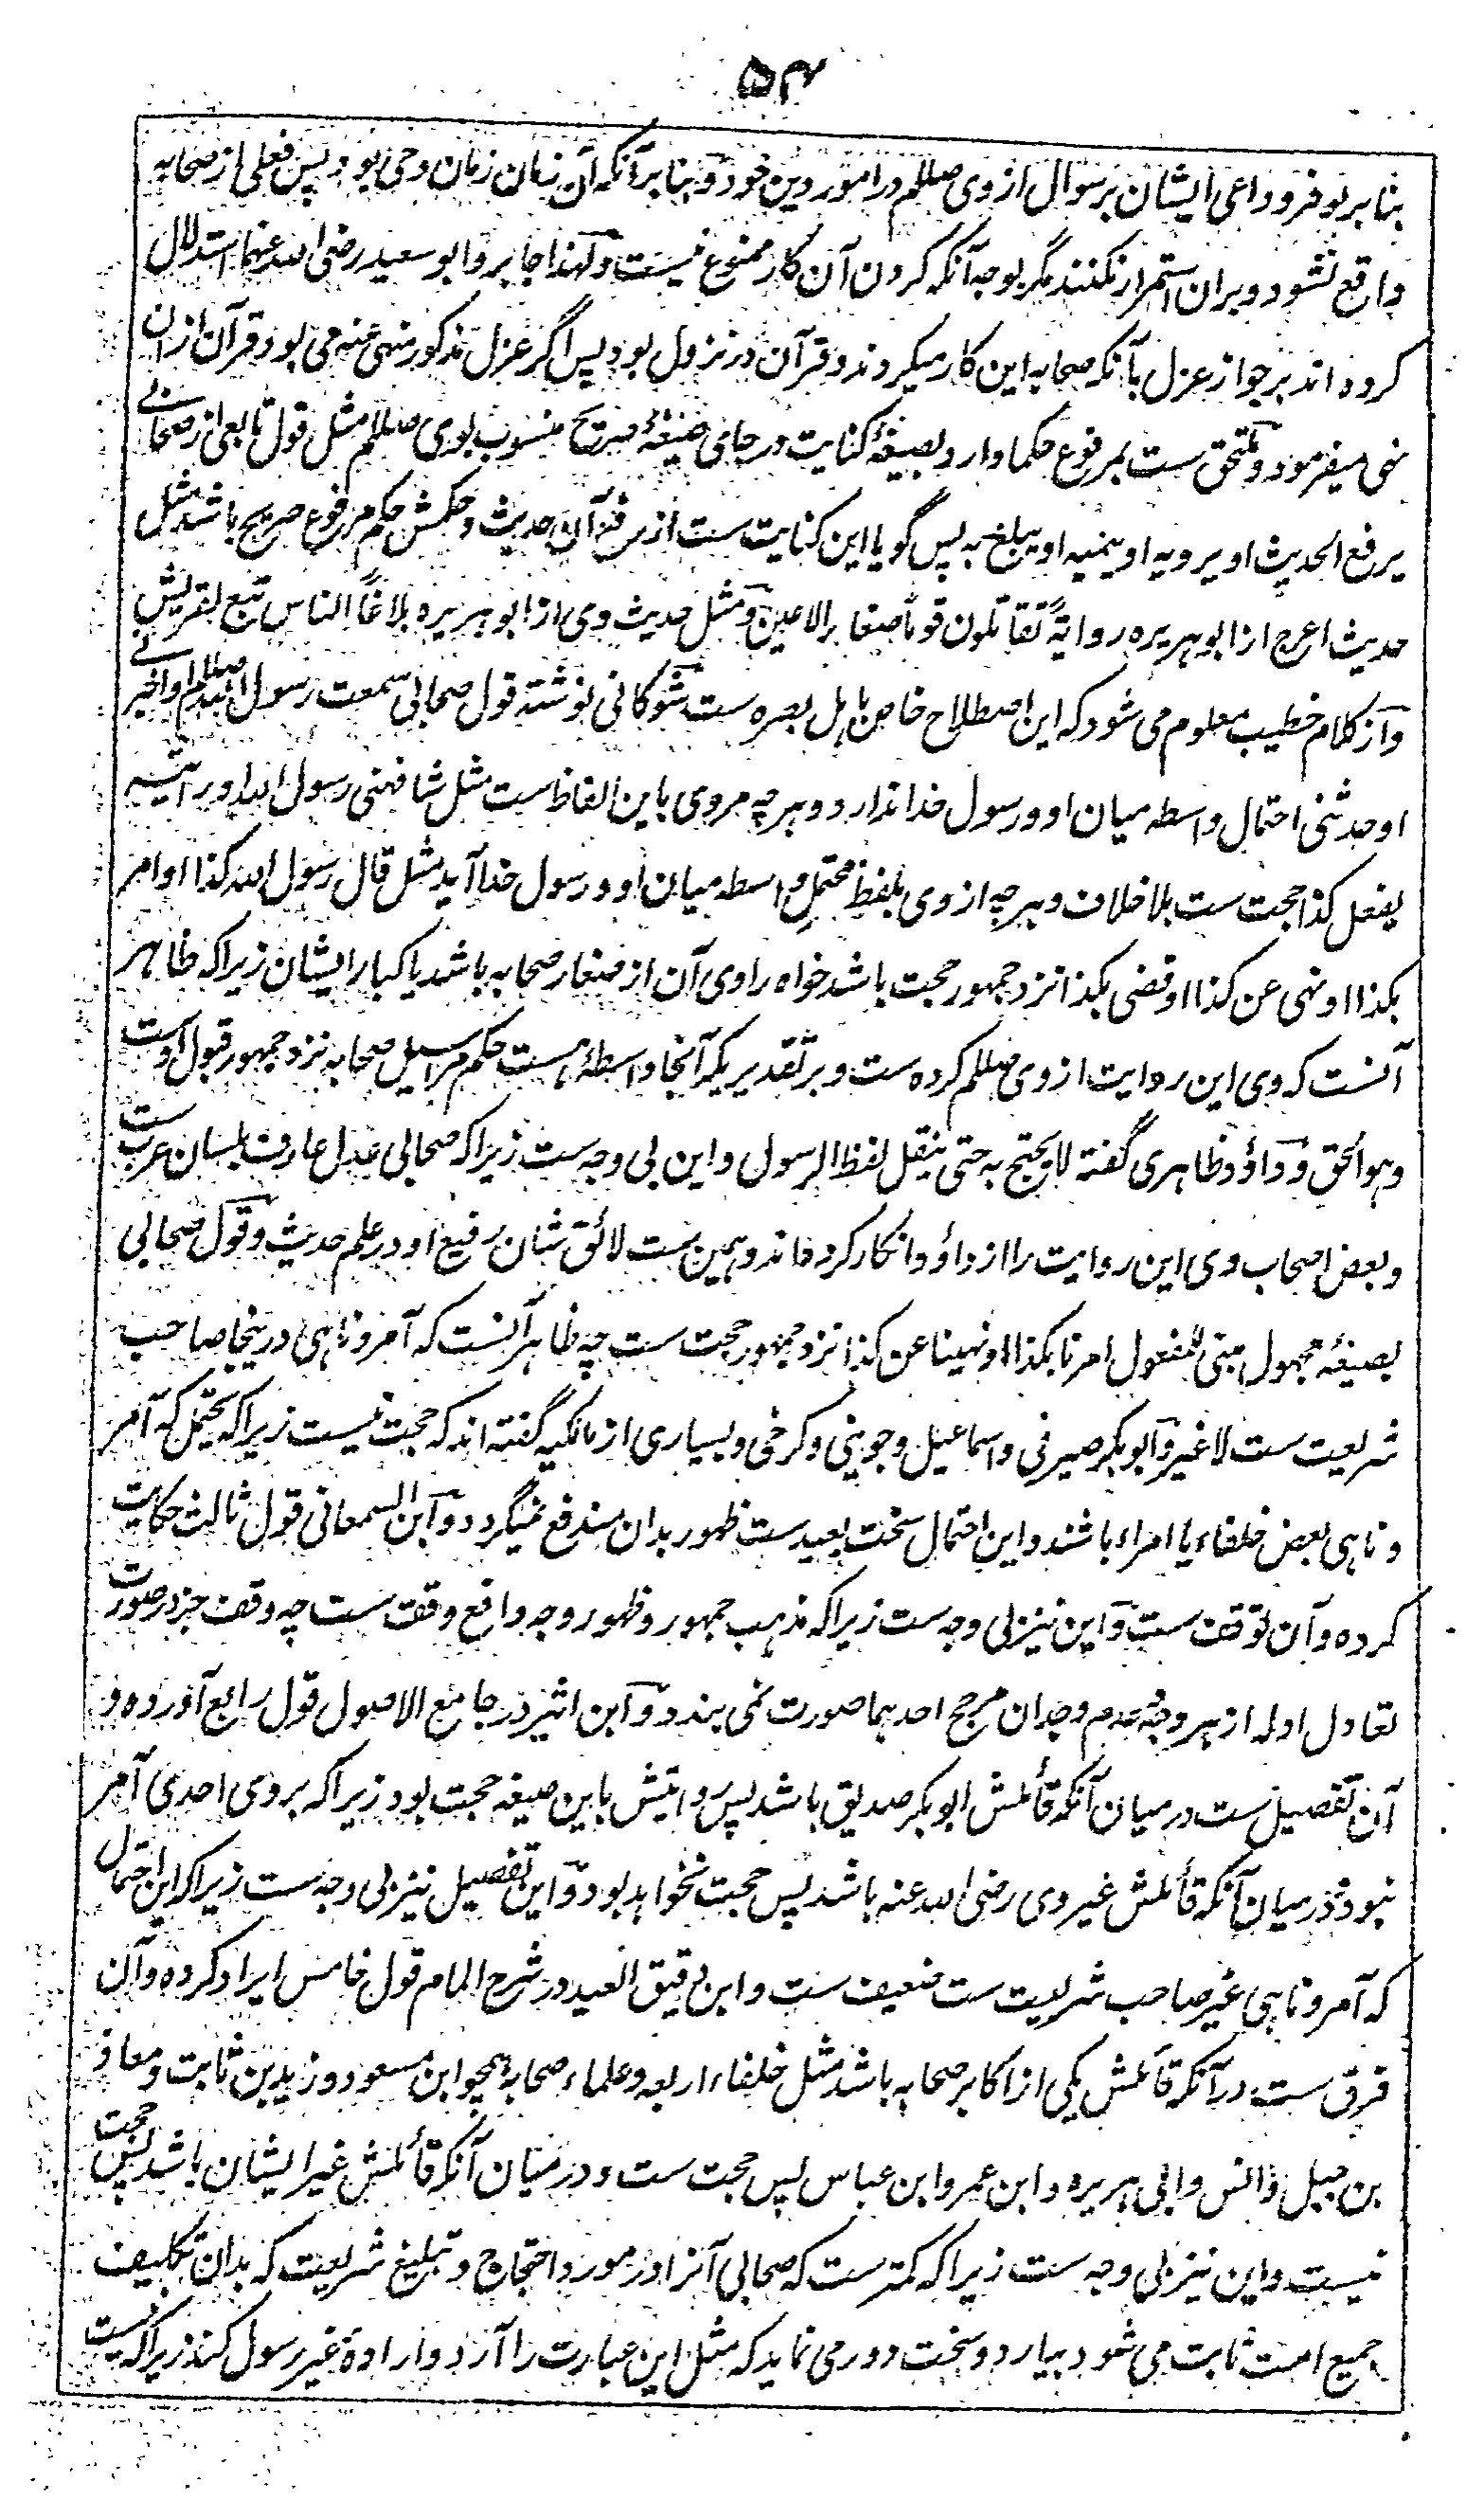 ۵۴
بنا بر توفر دواعی ایشان بر سوال از وی صللم در امور دین خود و بنا بر آنکه آن زمان زمان وحی بود پس فعلی از صحابه
واقع نشود و بران استمرار نکنند مگر بوجه آنکه کردن آن کار ممنوع نیست و لهذا جابر و ابو سعید رضی الله عنهما استدلال
کرده اند بر جواز عزل بآنکه صحابه این کار میکردند و قرآن در نزول بود پس اگر عزل مذکور منهی عنه می بود قرآن ازان
نهی میفرمود و ملتحق ست بمرفوع حکما وارد بصیغهٔ کنایت در جای صیغهٔ صریح منسوب بوی صللم مثل قول تابعی از صحابے
یرفع الحدیث او یرویه او ینمیه او یبلغ به پس گویا این کنایت ست از رفع آن حدیث و حکمش حکم مرفوع صریح باشد مثل
حدیث اعرج از ابوهریره روایةً تقاتلون قوماً صغار الاعین و مثل حدیث وی از ابوهریره بلاغاً الناس تبع لقریش
و از کلام خطیب معلوم می شود که این اصطلاح خاص باهل بصره ست شوکانی نوشته قول صحابی سمعت رسول الله صللم او اخبرنے
او حدثنی احتمال واسطه میان او و رسول خدا ندارد و هر چه مروی باین الفاظ ست مثل شافهنی رسول الله او رأیته
یفعل کذا حجت ست بلا خلاف و هر چه از وی بلفظ محتمل واسطه میان او و رسول خدا آید مثل قال رسول الله کذا او امر
بکذا او نهی عن کذا او قضی بکذا نزد جمهور حجت باشد خواه راوی آن از صغار صحابه باشد یا کبار ایشان زیرا که ظاهر
آنست که وی این روایت از وی صللم کرده ست و بر تقدیریکه آنجا واسطهٔ هست حکم مراسیل صحابه نزد جمهور قبول اوست
و هو الحق و داؤد ظاهری گفته لا یحتج به حتی ینقل لفظ الرسول و این بی وجه ست زیرا که صحابی عدل عارف بلسان عرب ست
و بعض اصحاب وی این روایت را از داؤد انکار کرده اند و همین ست لائق شان رفیع او در علم حدیث و قول صحابی
بصیغهٔ مجهول مبنی للمفعول امرنا بکذا او نهینا عن کذا نزد جمهور حجت ست چه ظاهر آنست که آمر و ناهی درینجا صاحب
شریعت ست لا غیر و ابوبکر صیرفی و اسماعیل و جوینی و کرخی و بسیاری از مالکیه گفته اند که حجت نیست زیرا که یحتمل که آمر
و ناهی بعض خلفاء یا امراء باشند و این احتمال سخت بعید ست ظهور بدان مندفع نمیگردد و ابن السمعانی قول ثالث حکایت
کرده و آن توقف ست و این نیز بی وجه ست زیرا که مذهب جمهور و ظهور وجه دافع وقف ست چه وقف جز در صورت
تعادل ادله از هر وجه و عدم وجدان مرجح احدیهما صورت نمی بندد و ابن اثیر در جامع الاصول قول رابع آورده و
آن تفصیل ست در میان آنکه قائلش ابوبکر صدیق باشد پس روایتش باین صیغه حجت بود زیرا که بروی احدی آمر
نبود و در میان آنکه قائلش غیر وی رضی الله عنه باشد پس حجت نخواهد بود و این تفصیل نیز بی وجه ست زیرا که این احتمال
که آمر و ناهی غیر صاحب شریعت ست ضعیف ست و ابن دقیق العید در شرح المام قول خامس ایراد کرده و آن
فرق ست در آنکه قائلش یکی از اکابر صحابه باشد مثل خلفاء اربعه و علماء صحابه همچو ابن مسعود و زید بن ثابت و معاذ
بن جبل و انس و ابی هریره و ابن عمر و ابن عباس پس حجت ست و در میان آنکه قائلش غیر ایشان باشد پس حجت
نیست و این نیز بی وجه ست زیرا که کمتر ست که صحابی آنرا در مورد احتجاج و تبلیغ شریعت که بدان تکلیف
جمیع امت ثابت می شود بیارد و سخت دور می نماید که مثل این عبارت را آرد و اراده غیر رسول کند زیرا که نیست